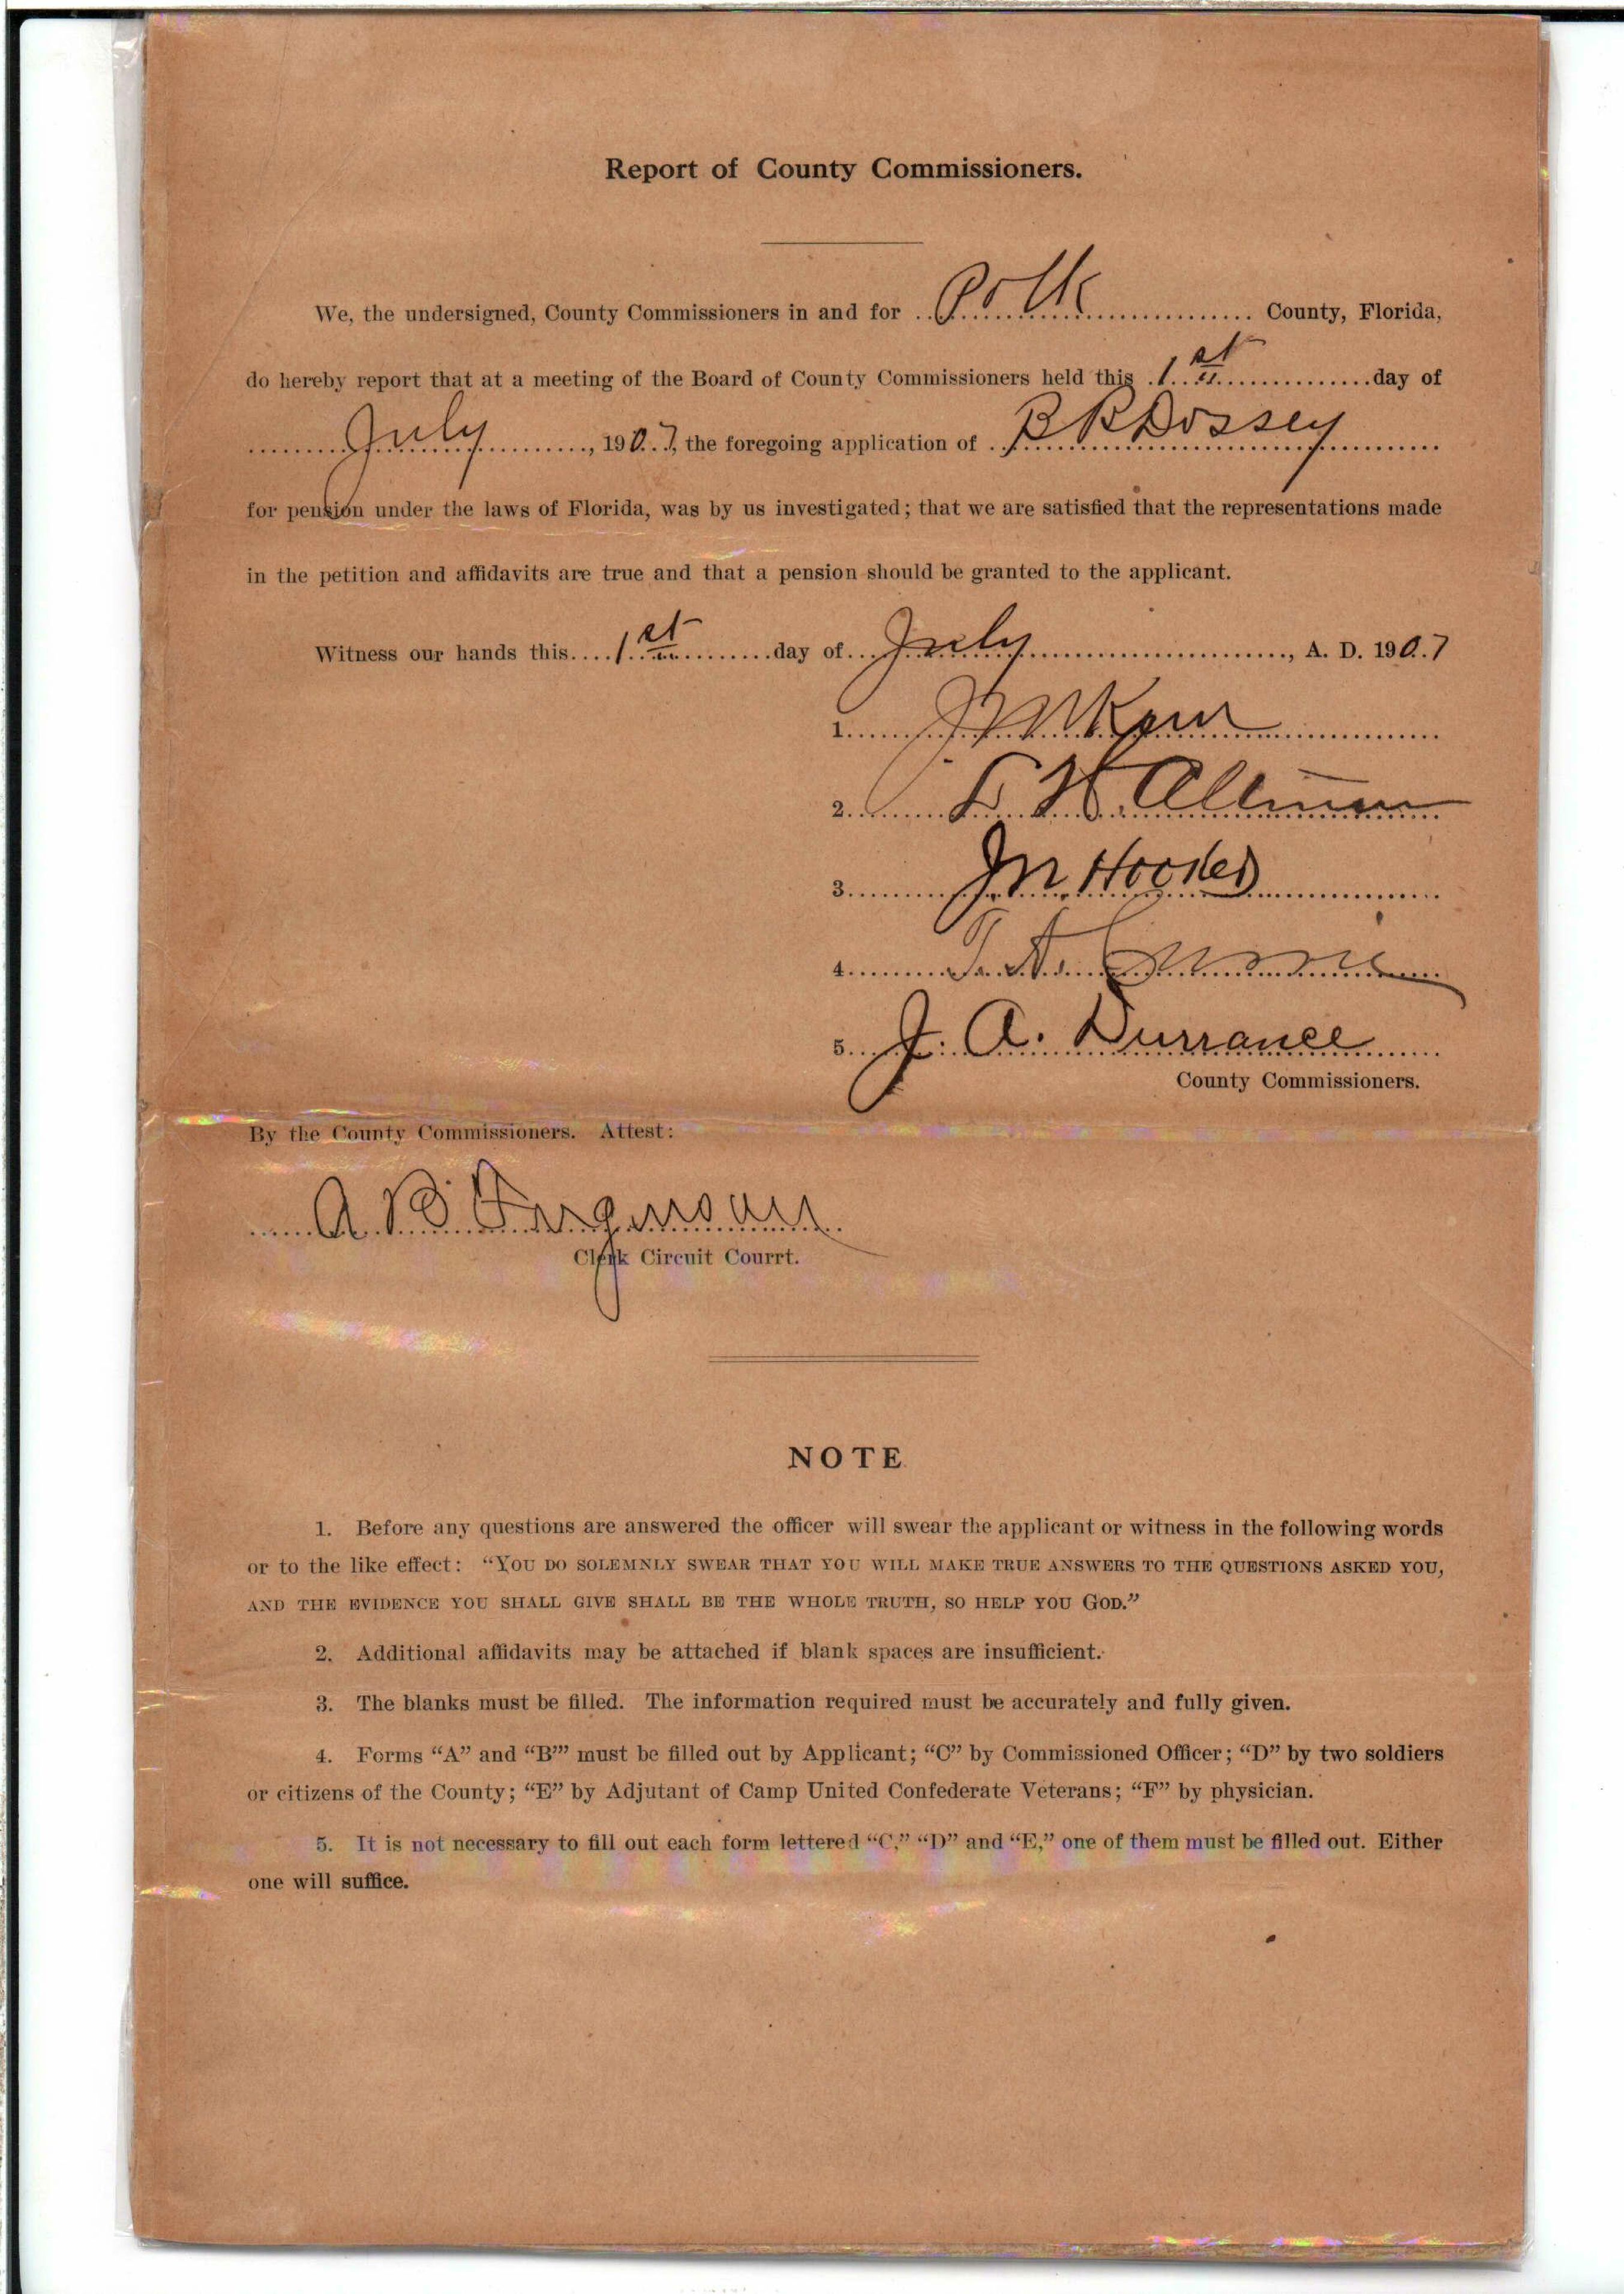 Report of County Commissioners.
We, the undersigned, County Commissioners in and for Polk County, Florida,
do hereby report that at a meeting of the Board of County Commissioners held this 1st day of
July, 1907, the foregoing application of B R Dossey
for pension under the laws of Florida, was by us investigated; that we are satisfied that the representations made
in the petition and affidavits are true and that a pension should be granted to the applicant.
Witness our hands this 1st day of July, A. D. 1907
1.
2. Altman
3. Hooker
4. T. A.
5. J. A. Durrance
County Commissioners.
By the County Commissioners. Attest:
A. B. Ferguson
Clerk Circuit Courrt.
NOTE
1. Before any questions are answered the officer will swear the applicant or witness in the following words
or to the like effect: “YOU DO SOLEMNLY SWEAR THAT YOU WILL MAKE TRUE ANSWERS TO THE QUESTIONS ASKED YOU,
AND THE EVIDENCE YOU SHALL GIVE SHALL BE THE WHOLE TRUTH, SO HELP YOU GOD.”
2. Additional affidavits may be attached if blank spaces are insufficient.
3. The blanks must be filled. The information required must be accurately and fully given.
4. Forms “A” and “B”’ must be filled out by Applicant; “C” by Commissioned Officer; “D” by two soldiers
or citizens of the County; “E” by Adjutant of Camp United Confederate Veterans; “F” by physician.
5. It is not necessary to fill out each form lettered “C,” “D” and “E,” one of them must be filled out. Either
one will suffice.